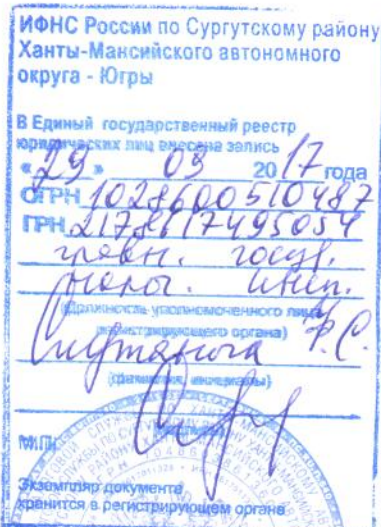 ИФНС России по Сургутскому району
Ханты-Мансийского автономного
округа - Югры
В Единый государственный реестр
юридических лиц внесена запись
«29» 03 2017 года
ОГРН 1028600510487
ГРН 2178617495054
главн. госул.
налог. инсп.
(должность уполномоченного лица
регистрирующего органа)
Ф.С.
(фамилия, инициалы)
М.П.
Экземпляр документа
хранится в регистрирующем органе